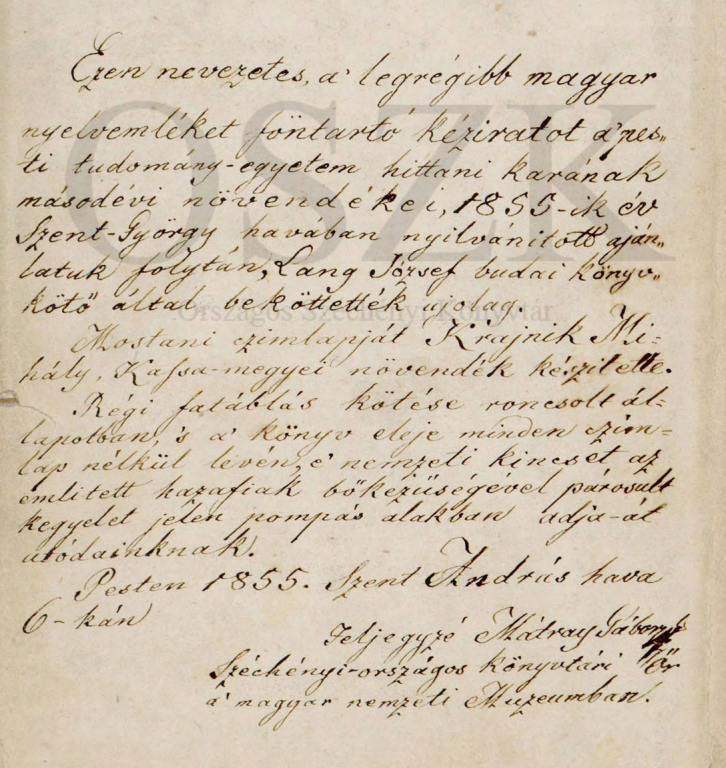 Ezen nevezetes, a' legrégibb magyar
nyelvemléket föntartó kéziratot a' pes„
ti tudomány-egyetem hittani karának
másodévi növendékei, 1855-ik év
Szent-György havában nyilvánitott aján„
latuk folytán, Lang József budai könyv„
kötő által beköttették ujolag.
Országos Széchényi Könyvtár
Mostani czimlapját Krajnik Mi-
hály, Kassa-megyei növendék készitette.
Régi fatáblás kötése roncsolt ál-
lapotban, 's a' könyv eleje minden czim=
lap nélkül lévén, e' nemzeti kincset az
emlitett hazafiak bőkezűségével párosult
kegyelet jelen pompás alakban adja-át
utódainknak.
Pesten 1855. Szent András hava
6-kán
Feljegyzé Mátray Gábor
Széchényi-országos könyvtári őr
a' magyar nemzeti Muzeumban.
OSZK